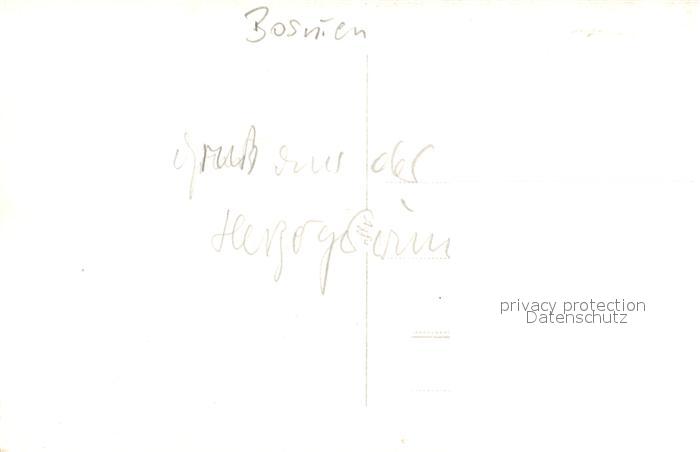 Bosnien
Gruß aus der
Herzogowina
privacy protection
Datenschutz